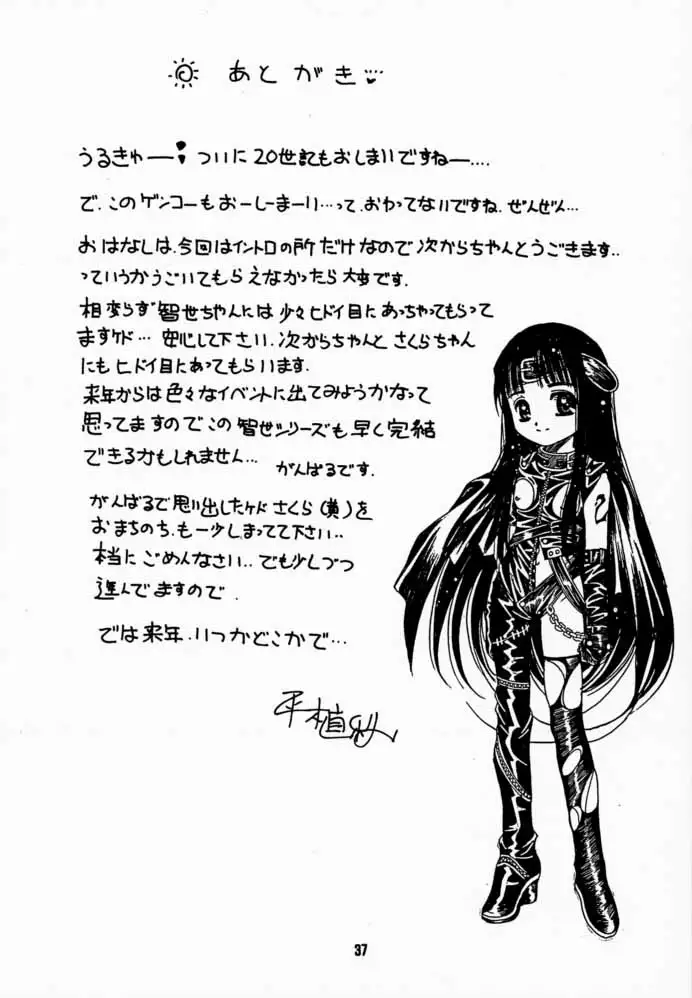 あとがき
うるきゅー ついに20世紀もおしまいですねー....
で、このゲンコーもおーしーまーい...って、おわってないですね、ぜんぜん...
おはなしは、今回はイントロの所だけなので次からちゃんとうごきます..
っていうかうごいてもらえなかったら大事です.
相変らず智世ちゃんには少々ヒドイ目にあっちゃってもらって
ますケド... 安心して下さい. 次からちゃんとさくらちゃん
にもヒドイ目にあってもらいます.
来年からは色々なイベントに出てみようかなって
思ってますのでこの智世シリーズも早く完結
できるかもしれません... がんばるです.
がんばるで思い出したケドさくら(黄)を
おまちのち、も一少しまってて下さい..
本当にごめんなさい.. でも少しづつ
進んでますので.
では来年、いつかどこかで...
37